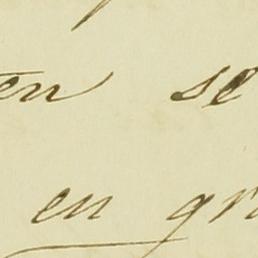 en se
en gr